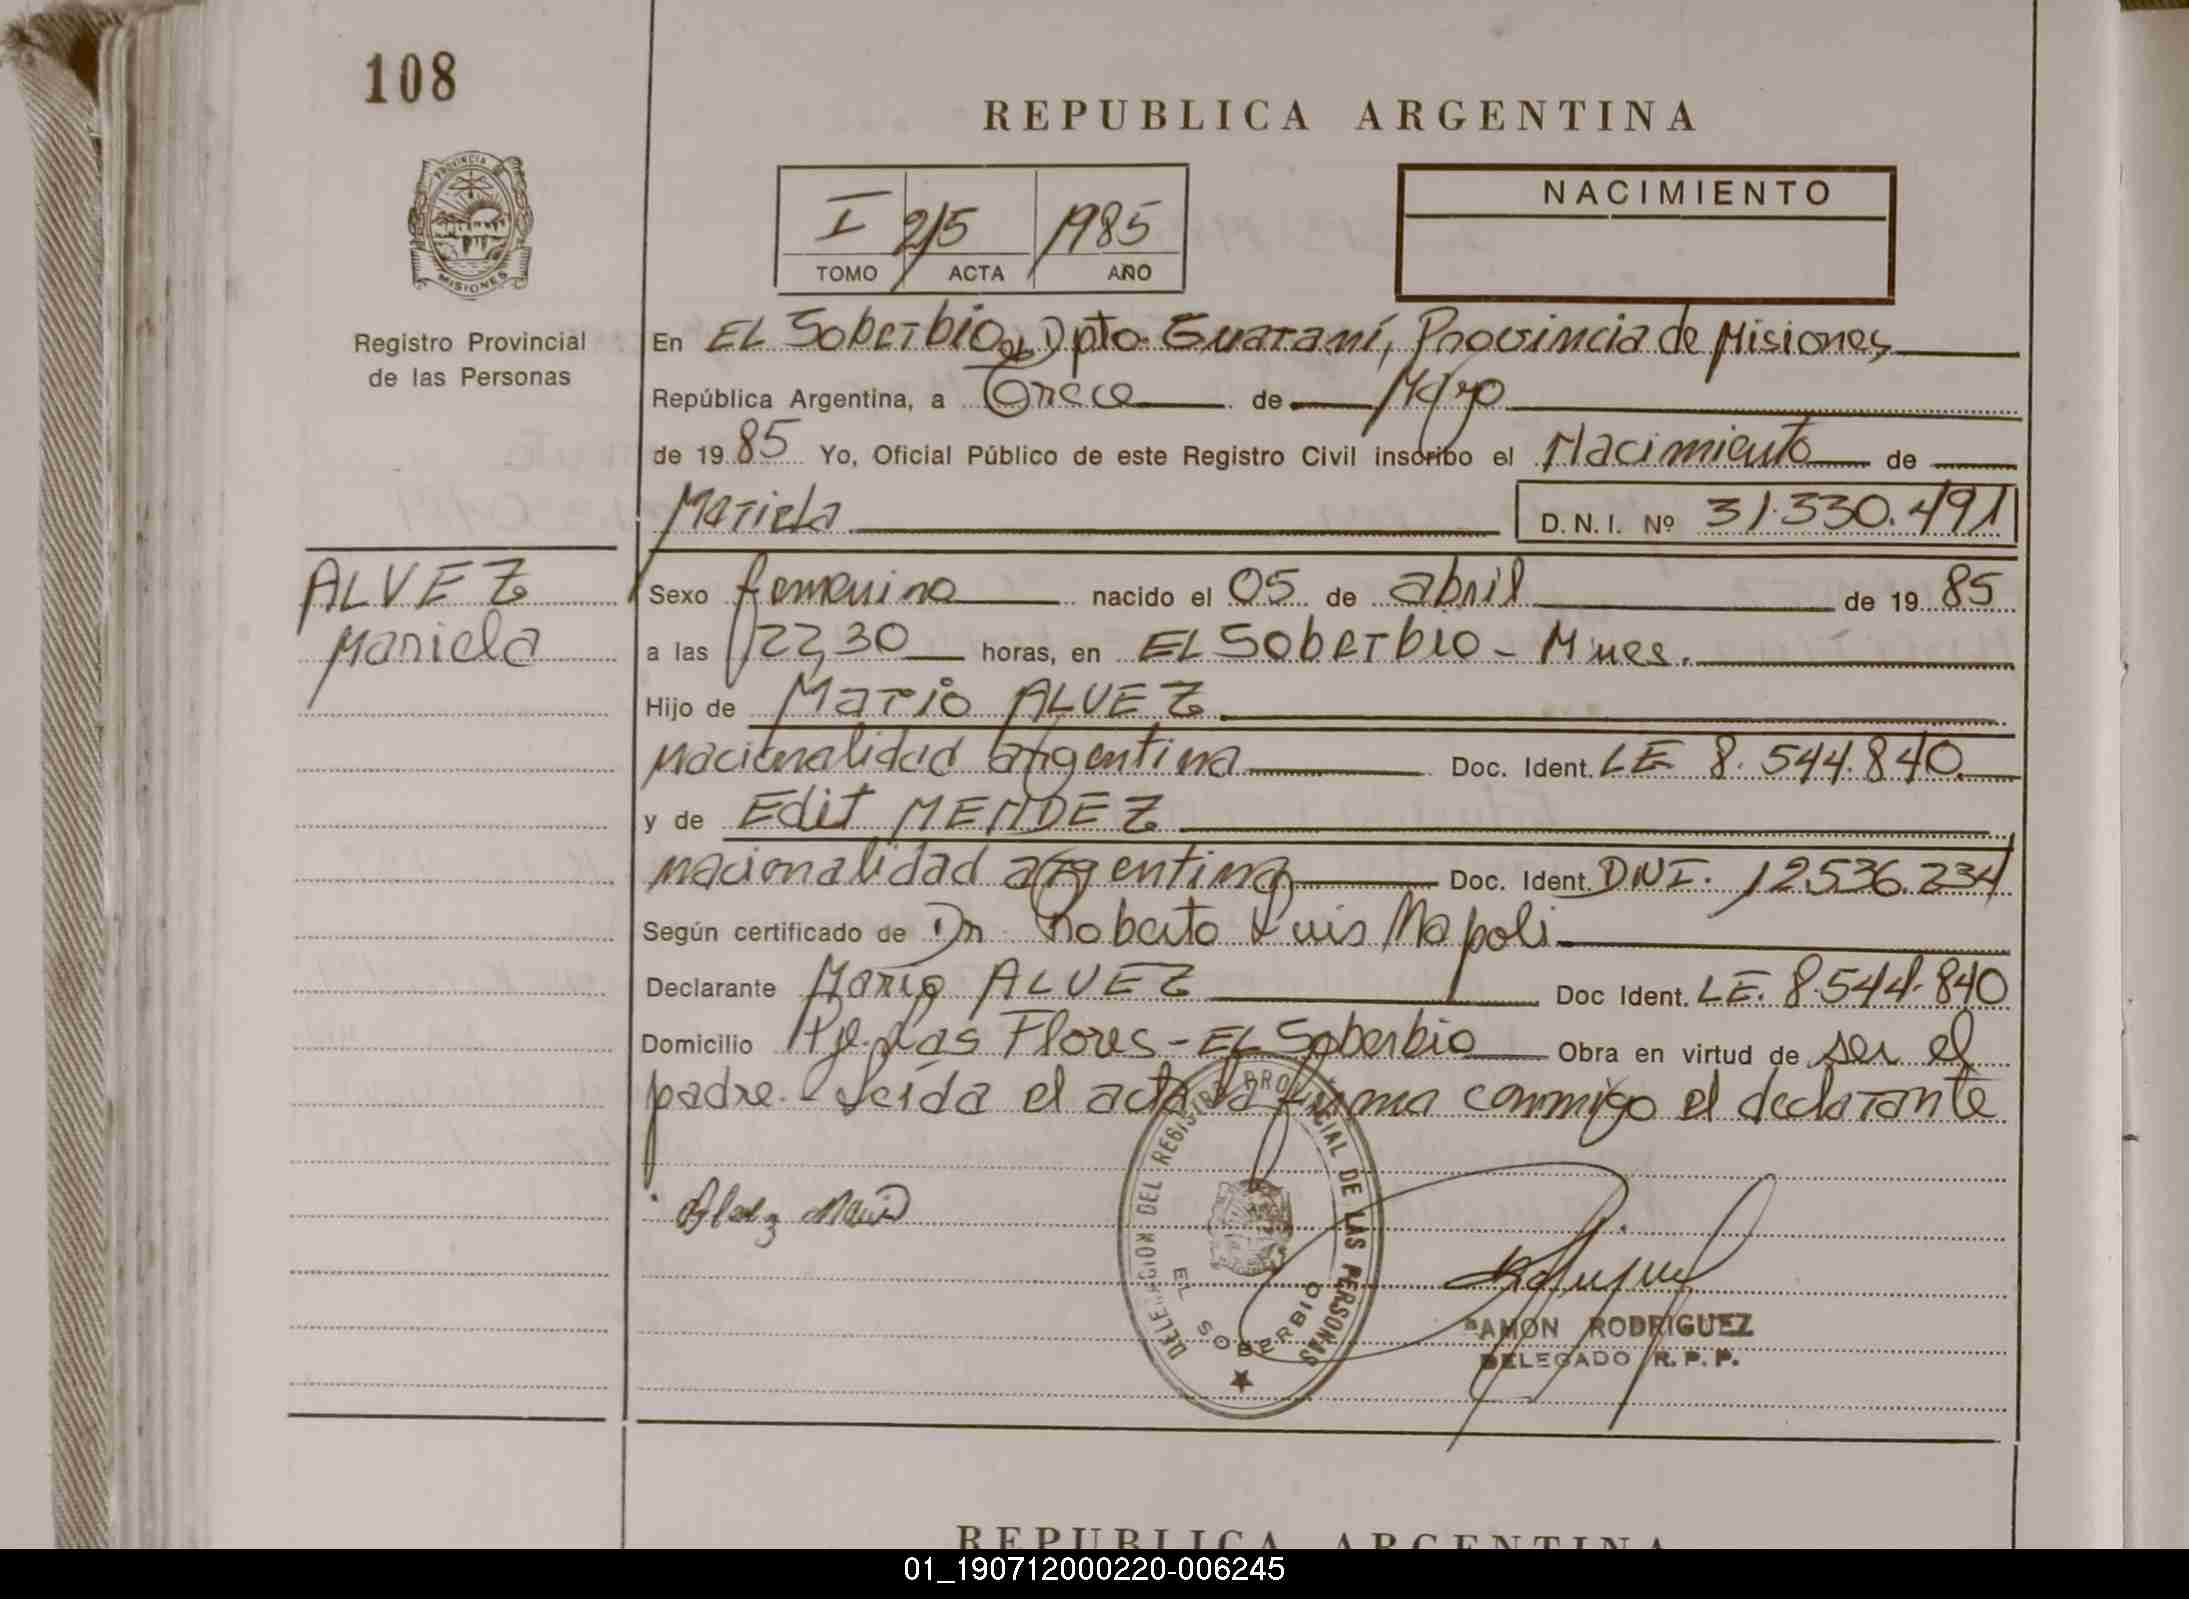 108
REPUBLICA ARGENTINA
PROVINCIA DE
MISIONES
Registro Provincial
de las Personas
I 215 1985
TOMO ACTA AÑO
NACIMIENTO
En EL Soberbio, Dpto. Guaraní, Provincia de Misiones,
República Argentina, a Trece de Mayo
de 1985 Yo, Oficial Público de este Registro Civil inscribo el Nacimiento de
Mariela D.N.I. Nº 31.330.491
ALVEZ
Mariela
Sexo femenino nacido el 05 de abril de 1985
a las 22,30 horas, en EL Soberbio - Mnes.
Hijo de Mario ALVEZ
nacionalidad argentina Doc. Ident. LE 8.544.840.
y de Edit MENDEZ
nacionalidad argentina Doc. Ident. DNI. 12.536.234
Según certificado de Dr Roberto Luis Napoli
Declarante Mario ALVEZ Doc Ident. LE. 8.544.840
Domicilio Pje. Las Flores - EL Soberbio Obra en virtud de ser el
padre. Leída el acta la firma conmigo el declarante
Alvez Mario
DELEGACION DEL REGISTRO PROVINCIAL DE LAS PERSONAS
EL SOBERBIO
RAMON RODRIGUEZ
DELEGADO R.P.P.
REPUBLICA ARGENTINA
01_190712000220-006245